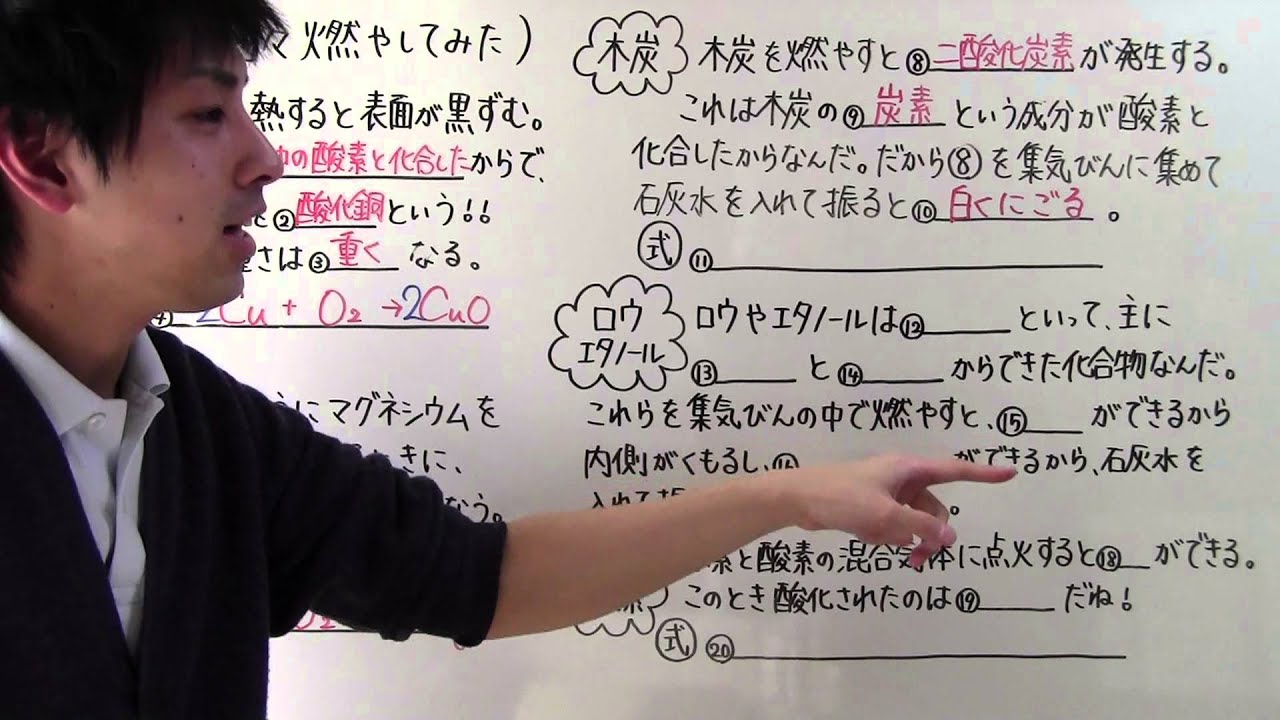 燃やしてみた)
熱すると表面が黒ずむ。
の酸素と化合したからで、
②酸化銅という!!
さは③重く なる。
2Cu + O₂ → 2CuO
にマグネシウムを
ときに、
なう。
O₂
木炭 木炭を燃やすと⑧二酸化炭素が発生する。
これは木炭の⑨炭素という成分が酸素と
化合したからなんだ。だから⑧を集気びんに集めて
石灰水を入れて振ると⑩白くにごる。
式 ⑪
ロウ
エタノール
ロウやエタノールは⑫ といって、主に
⑬ と⑭ からできた化合物なんだ。
これらを集気びんの中で燃やすと、⑮ ができるから
内側がくもるし、⑯ ができるから、石灰水を
入れて振 。
素と酸素の混合気体に点火すると⑱ ができる。
このとき酸化されたのは⑲ だね!
式 ⑳